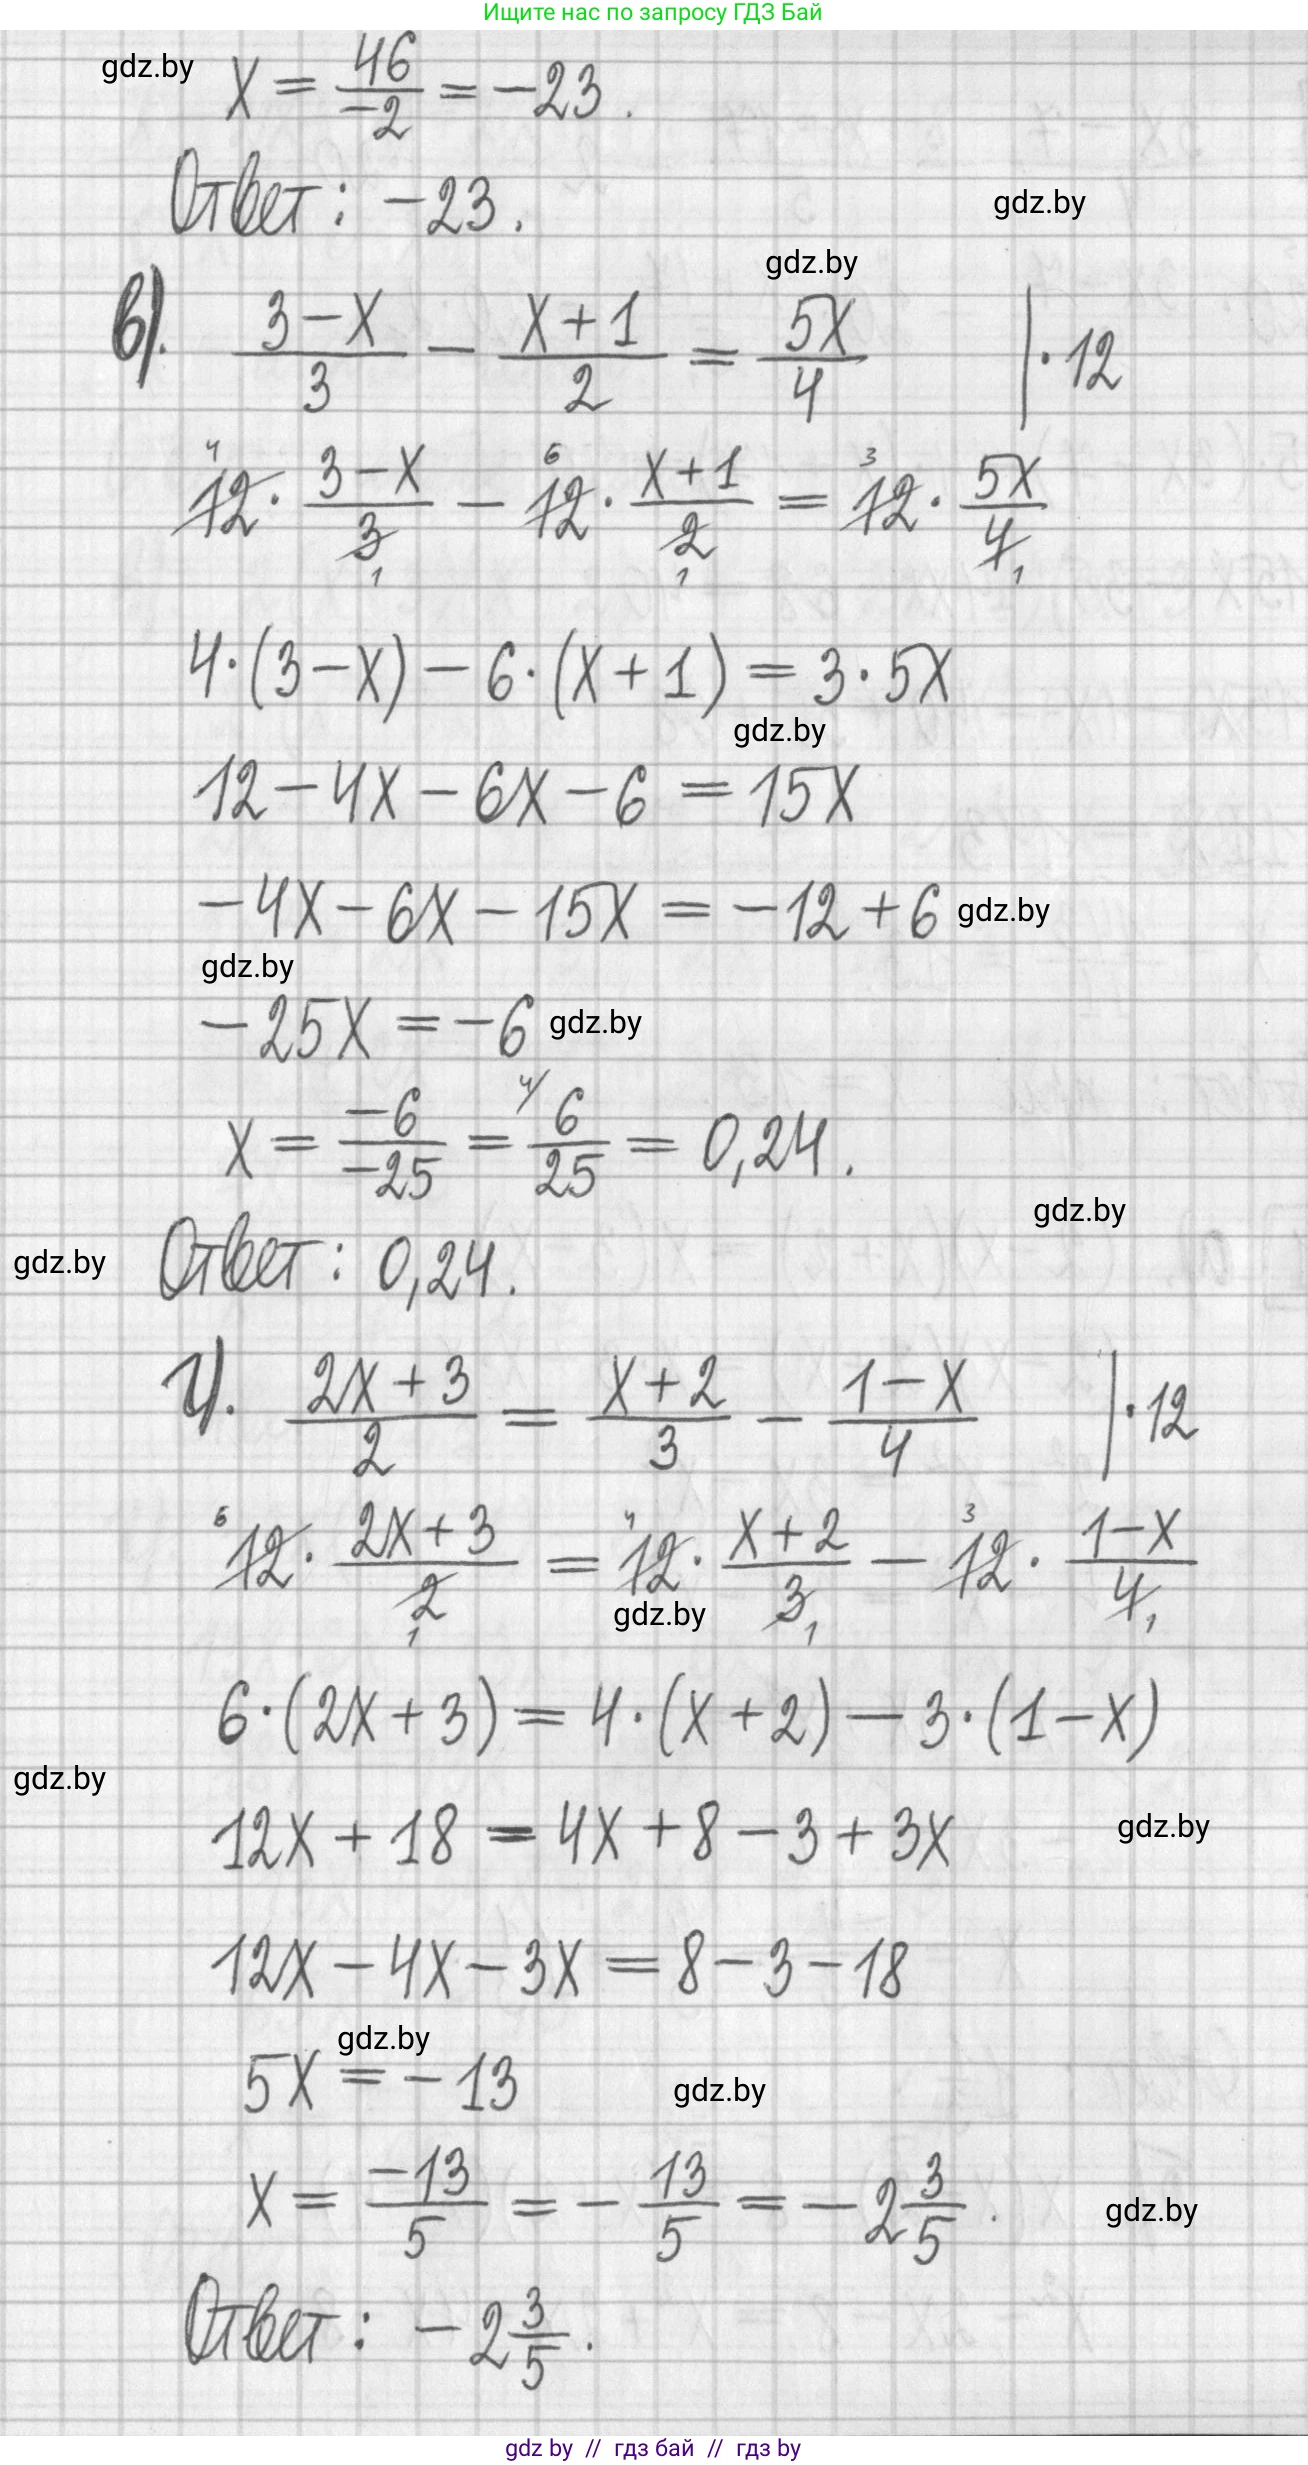 Ищите нас по запросу ГДЗ Бай
gdz.by
x = 46/-2 = -23.
Ответ: -23.
gdz.by
gdz.by
в). (3-x)/3 - (x+1)/2 = 5x/4 | ·12
⁴12 · (3-x)/3₁ - ⁶12 · (x+1)/2₁ = ³12 · 5x/4₁
4·(3-x) - 6·(x+1) = 3·5x
gdz.by
12-4x-6x-6 = 15x
-4x-6x-15x = -12+6 gdz.by
gdz.by
-25x = -6 gdz.by
x = -6/-25 = ⁴⁾6/25 = 0,24.
gdz.by
gdz.by
Ответ: 0,24.
г). (2x+3)/2 = (x+2)/3 - (1-x)/4 | ·12
⁶12 · (2x+3)/2₁ = ⁴12 · (x+2)/3₁ - ³12 · (1-x)/4₁
gdz.by
6·(2x+3) = 4·(x+2) - 3·(1-x)
gdz.by
12x+18 = 4x+8-3+3x
gdz.by
12x-4x-3x = 8-3-18
gdz.by
5x = -13
gdz.by
x = -13/5 = - 13/5 = -2 3/5.
gdz.by
Ответ: -2 3/5.
gdz by // гдз бай // гдз by